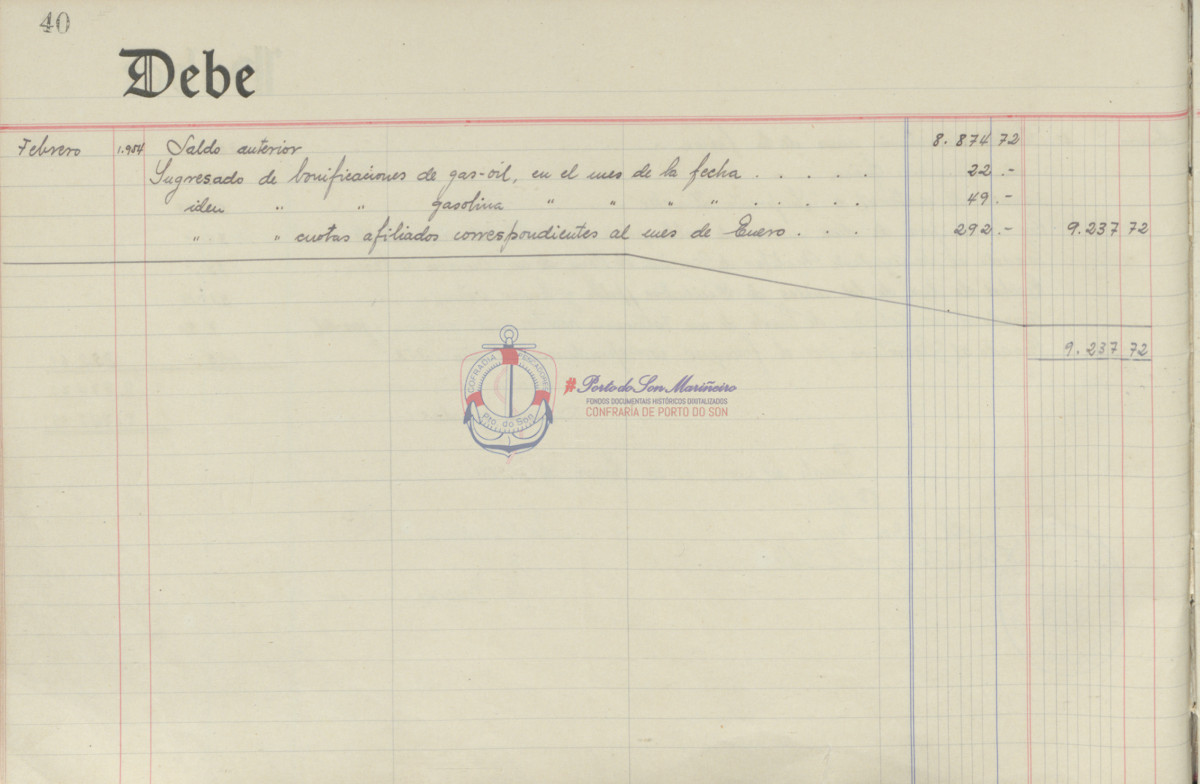 40
Debe
Febrero 1.954 Saldo anterior 8.874 72
Ingresado de bonificaciones de gas-óil, en el mes de la fecha . . . . . 22.-
iden " " gasolina " " " " . . . . . 49.-
" " cuotas afiliados correspondientes al mes de Enero . . . 292.- 9.237 72
9.237 72
COFRADIA PESCADORES
Pto. do Son
#Porto do Son Mariñeiro
FONDOS DOCUMENTAIS HISTÓRICOS DIXITALIZADOS
CONFRARÍA DE PORTO DO SON